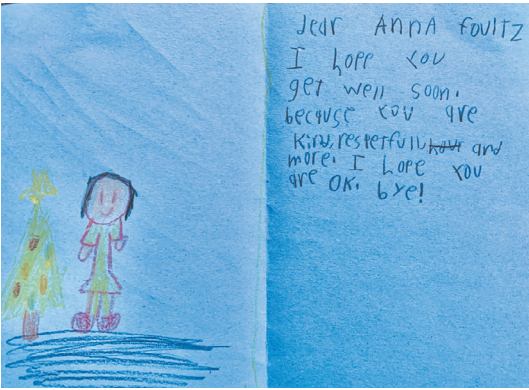 dear AnnA Foultz
I hope you
get well soon.
because you are
kind, resterfull and
more. I hope you
are OK. bye!